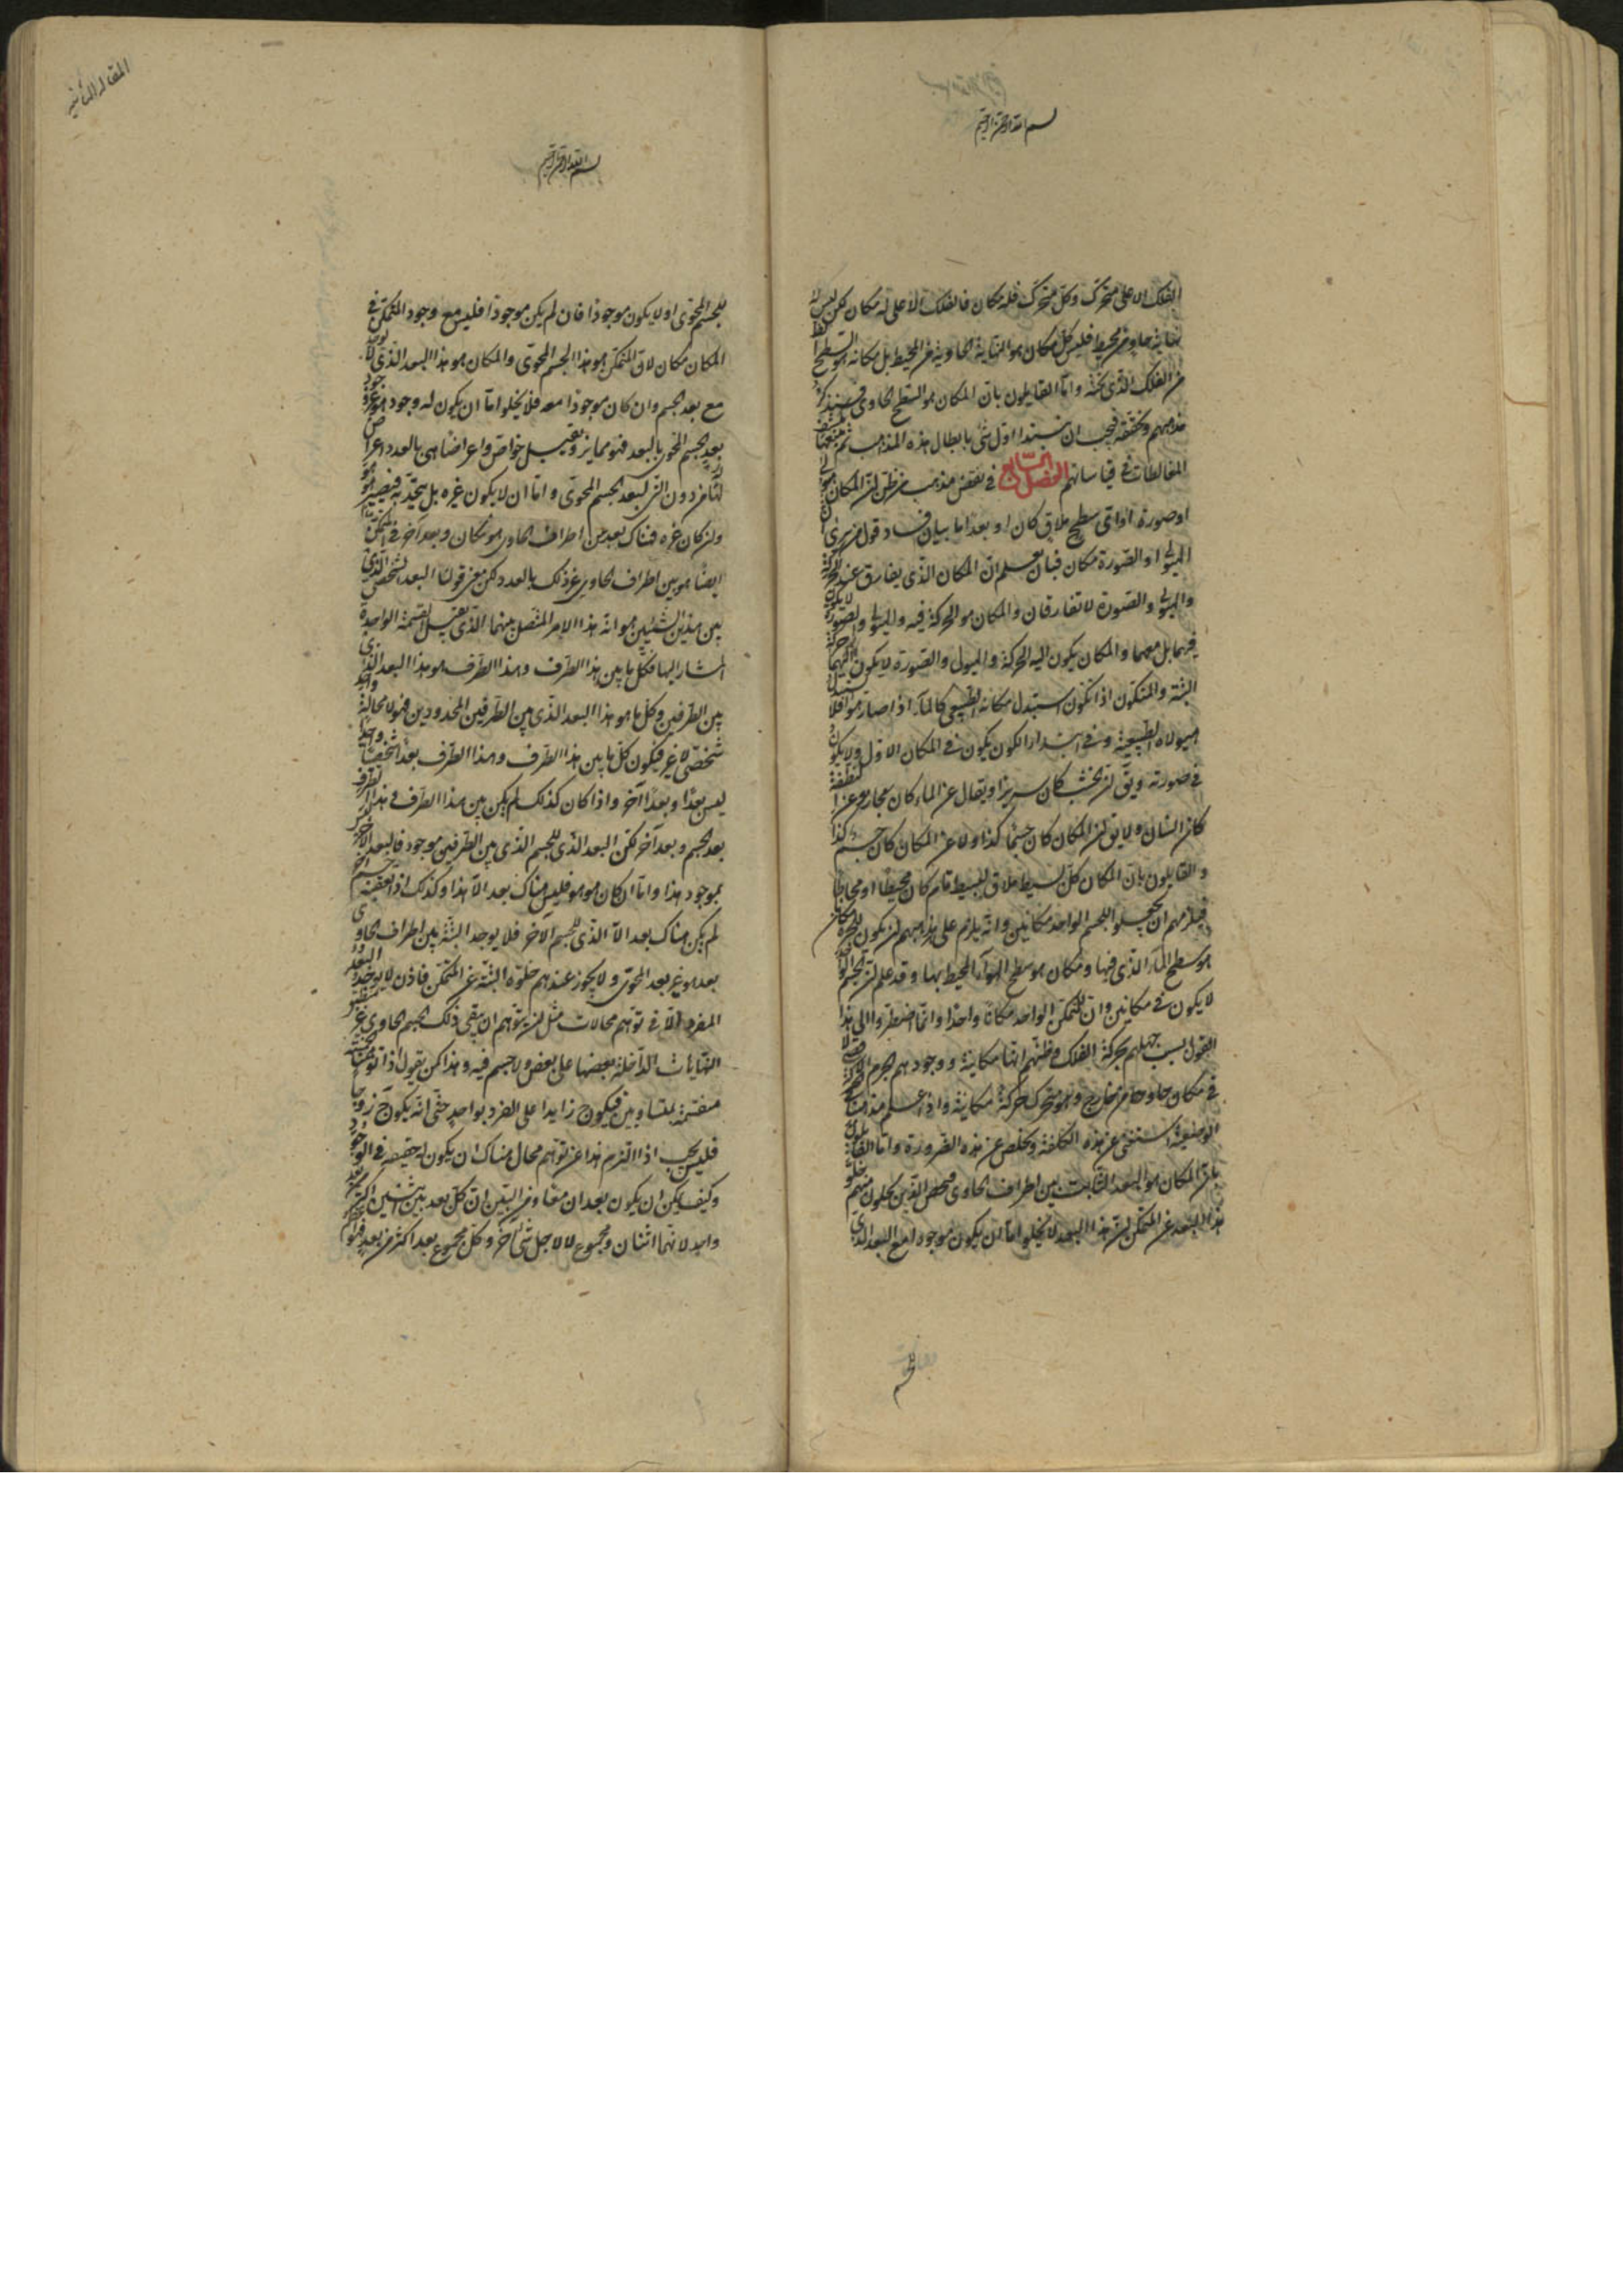 بسم الله الرحمن الرحيم
الفلك الاعلى متحرك وكل متحرك فله مكان فالفلك الاعلى له مكان لكن ليس له
نهاية حاو من محيط فليس كل مكان هو النهاية الحاوية من المحيط بل مكانه هو السطح الظ
من الفلك الذى تحته واما القايلون بان المكان هو السطح الحاوى فسنذكر
مذهبهم ونحققه فيجب ان نبتدا اول شى بابطال هذه المذاهب ثم نتبعها
المغالطات فى قياساتهم الفصل السابع فى نقض مذهب من ظن ان المكان هيولى
او صورة او اى سطح ملاق كان او بعدا اما بيان فساد قول من يرى ان
الهيولى او الصورة مكان فبان يعلم ان المكان الذى يفارق عند الحركة
والهيولى والصورة لا تفارقان والمكان هو الحركة فيه والهيولى والصورة لا يكون
فيهما بل معهما والمكان يكون اليه الحركة والهيولى والصورة لا يكون اليهما حركة
البتة والمتكون اذا تكون استبدل مكانه الطبيعى كالماء اذا صار هوا فلا
هيولاه الطبيعية وفى ابتداء الكون يكون فى المكان الاول ولا يكون
فى صورته ويق ان الخشب كان سريرا ويقال عن الماء كان بخار وعن النطفة
كان انسان ولا يق ان المكان كان جسما كذا ولا عن المكان كان جسم كذا
والقايلون بان المكان كل بسيط ملاق لبسيط تام كان محيطا او محاطا
فيلزمهم ان يجعلوا للجسم الواحد مكانين وانه يلزم على مذهبهم ان يكون للجرة مكان
هو سطح الماء الذى فيها ومكان هو سطح الهواء المحيط بها وقد علم ان الجسم الواحد
لا يكون فى مكانين وان للمتمكن الواحد مكانا واحدا وانما اضطروا الى هذا
القول بسبب جهلهم بحركة الفلك وظنهم انها مكانية ووجودهم الجرم الاقصى لا
فى مكان حاو من خارج وهو متحرك حركة مكانية واذ علم مذهبنا فى الحركة
الوضعية استغنى عن هذه الكلفة وتخلص عن هذه الضرورة واما القايلون
بان المكان هو البعد الثابت بين اطراف الحاوى فنخص الذين يحيلون منهم خلو
هذا البعد عن المتمكن ان هذا البعد لا يخلو اما ان يكون موجودا مع البعد الذى
للجسم
المقالة الثانية
بسم الله الرحمن الرحيم
للجسم المحوى او لا يكون موجودا فان لم يكن موجودا فليس مع وجود المتمكن فى
المكان مكان لان المتمكن هو هذا الجسم المحوى والمكان هو هذا البعد الذى لا يوجد
مع بعد الجسم وان كان موجودا معه فلا يخلو اما ان يكون له وجود هو غير وجود
بعد الجسم المحوى بالعدد فهو ممايز ويقبل خواص واعراضا هى بالعدد اعراض
لها من دون التى لبعد الجسم المحوى واما ان لا يكون غيره بل يتحد به فيصير هو هو
وان كان غيره فهناك بعد بين اطراف الحاوى هو مكان وبعد اخر فى المتمكن
ايضا هو بين اطراف الحاوى غير ذلك بالعدد لكن معنى قولنا البعد الشخصى الذى
بين هذين الشيئين هو انه هذا الامر المتصل بينهما الذى يقبل القسمة الواحدة
المشار اليها فكل ما بين هذا الطرف وهذا الطرف هو هذا البعد الذى
بين الطرفين وكل ما هو هذا البعد الذى بين الطرفين المحدودين فهو لا محالة واحد
شخصى لا غير فيكون كل ما بين هذا الطرف وهذا الطرف بعدا شخصيا واحدا
ليس بعدا وبعدا آخر واذا كان كذلك لم يكن بين هذا الطرف وهذا الطرف
بعد الجسم وبعد آخر لكن البعد الذى للجسم الذى بين الطرفين موجود فالبعد الآخر ليس
بموجود هذا واما ان كان هو هو فليس هناك بعد الا هذا وكذلك اذا تعقبه جسم اخر
لم يكن هناك بعد الا الذى للجسم الاخر فلا يوجد البتة بين اطراف الحاوى
بعد هو غير بعد المحوى ولا يجوز عندهم خلوه البتة عن المتمكن فاذن لا يوجد البعد
المفرد الا فى توهم محالات مثل ان يتوهم ان يبقى ذلك الجسم الحاوى غير منطبق
النهايات الداخلة بعضها على بعض ولا جسم فيه وهذا كمن يقول اذا توهمنا الخمسة
منقسمة بمتساويين فيكون ح زايدا على الفرد بواحد حتى انه يكون ح زوجا
فليس يجب اذا التزم هذا عن توهم محال هناك ان يكون له حقيقة فى الوجود
وكيف يمكن ان يكون بعدان معا ومن البين ان كل بعدين اثنين اكثر من بعد
واحد لانهما اثنان ومجموع لا لاجل شى آخر وكل مجموع بعد اكثر من بعد فهو اعظم